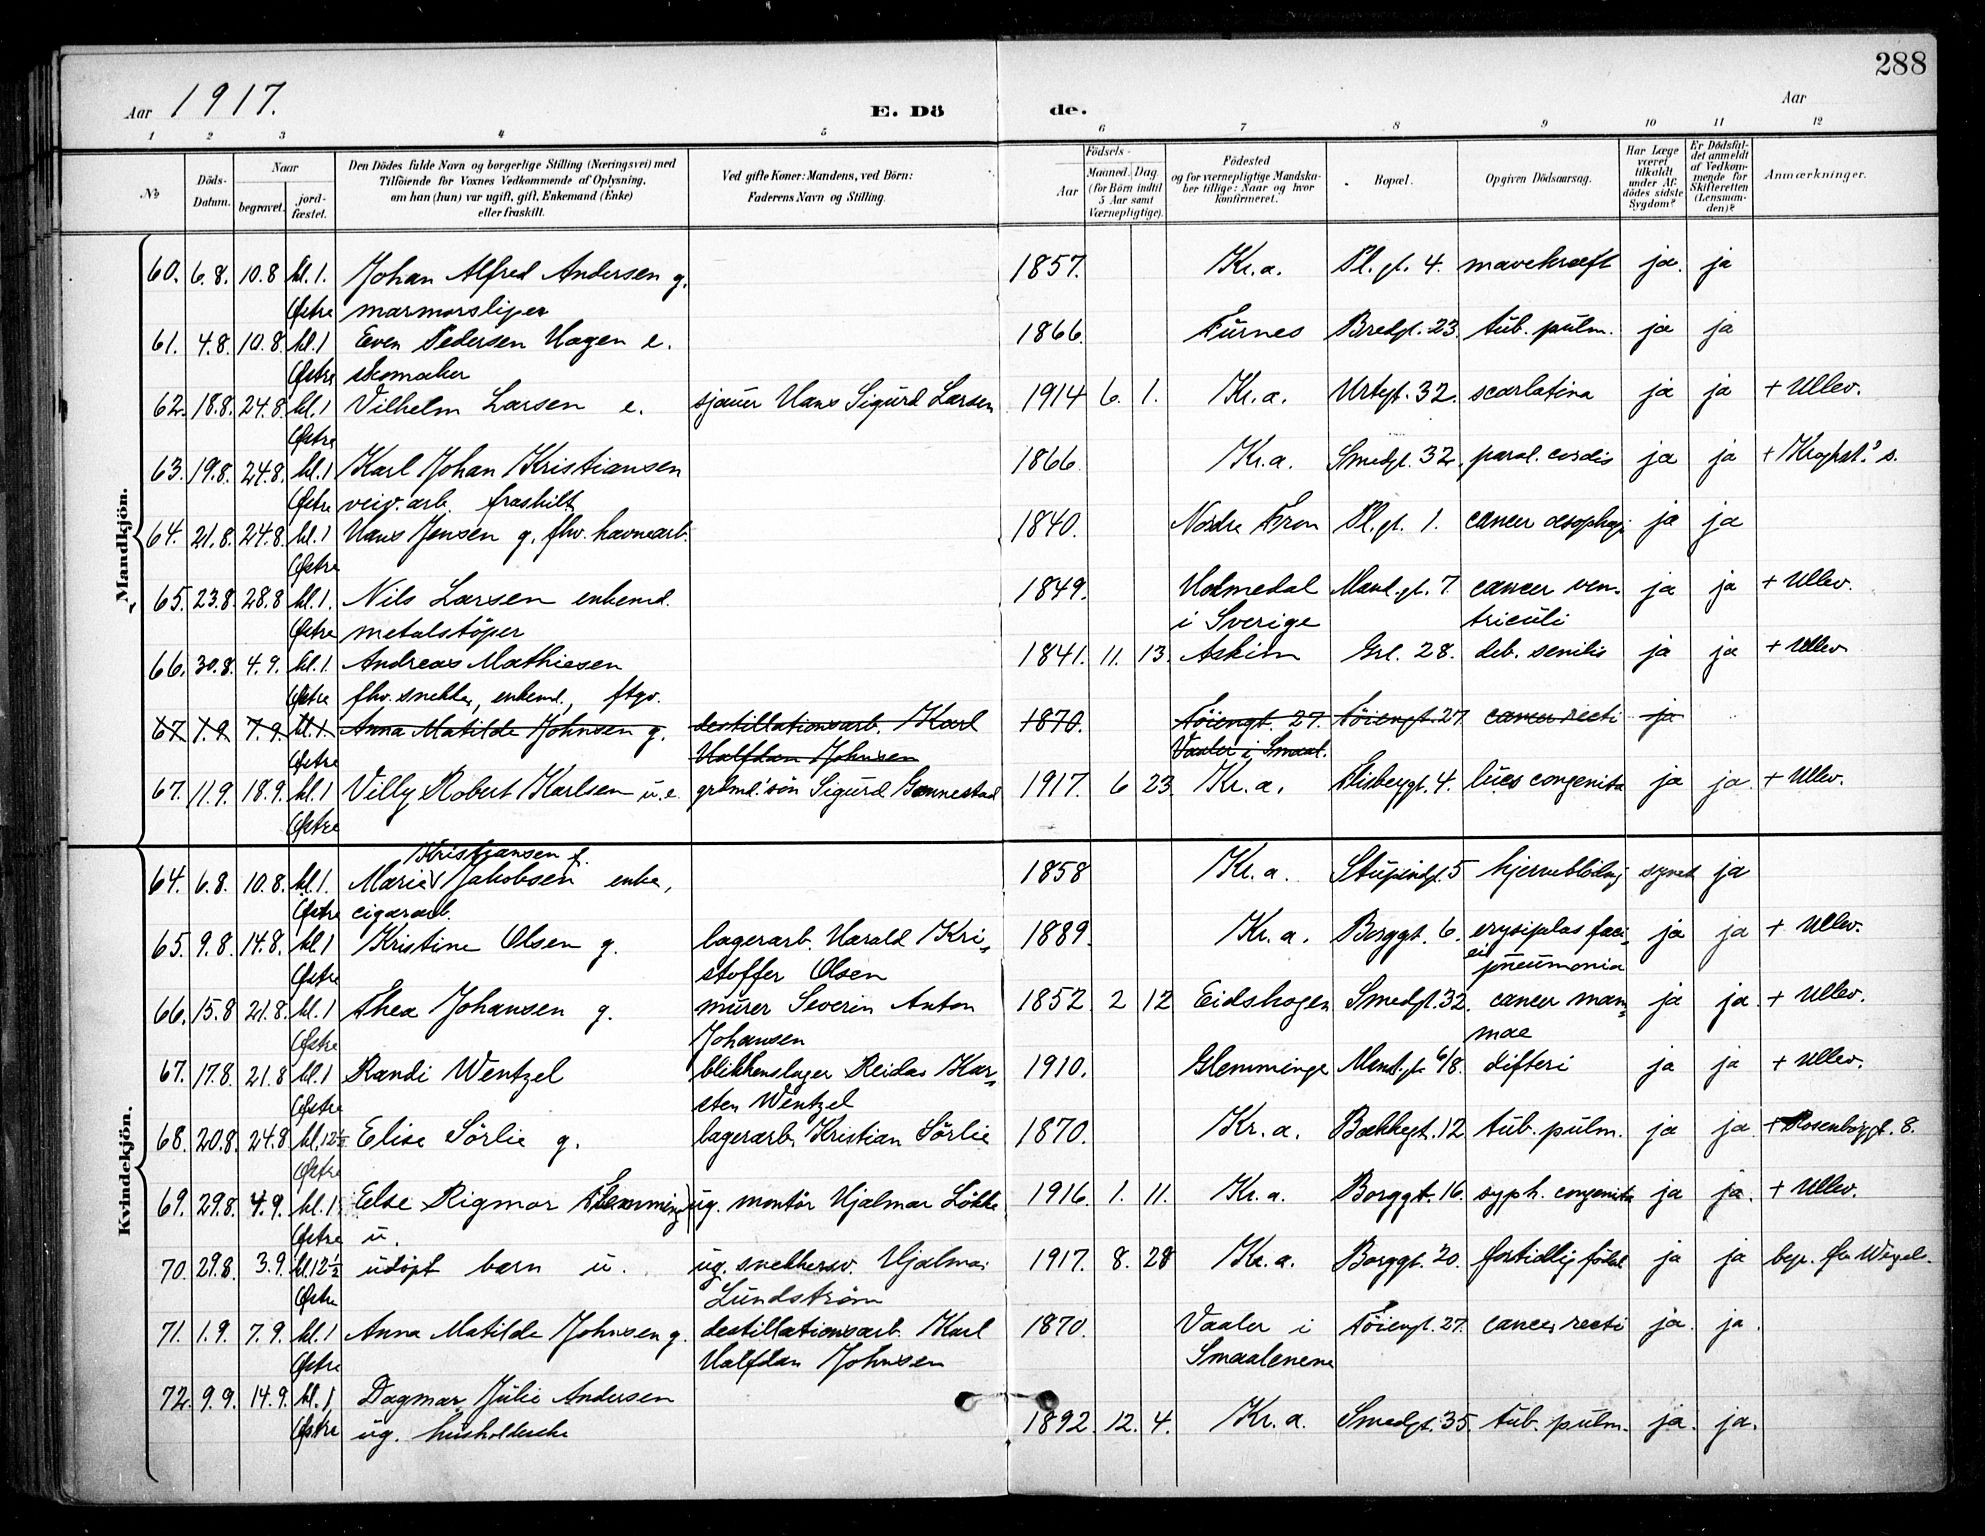 288
Aar 1917. E. Dö de. Aar
1 2 3 4 5 6 7 8 9 10 11 12
No Döds-Datum. Naar begravet. jordfæstet. Den Dödes fulde Navn og borgerlige Stilling (Næringsvei) med Tilföiende for Voxnes Vedkommende af Oplysning, om han (hun) var ugift, gift, Enkemand (Enke) eller fraskilt. Ved gifte Koner: Mandens, ved Börn: Faderens Navn og Stilling. Födsels- Aar Maaned. Dag. (for Börn indtil 5 Aar samt Værnepligtige). Födested og for værnepligtige Mandskaber tillige: Naar og hvor konfirmeret. Bopæl. Opgiven Dödsaarsag. Har Læge været tilkaldt under Afdödes sidste Sygdom? Er Dödsfaldet anmeldt af Vedkommende for Skifteretten (Lensmanden)? Anmærkninger.
Mandkjön.
60. 6.8. 10.8 kl.1. Johan Alfred Andersen g. 1857. Kr.a. Pl.gt. 4. mavekræft ja. ja
Østre marmorsliper
61. 4.8. 10.8. kl.1 Even Pedersen Hagen e. 1866. Furnes Bredgt. 23. tub. pulm. ja ja
Østre skomaker
62. 18.8. 24.8. kl.1 Vilhelm Larsen e. sjauer Hans Sigurd Larsen 1914 6. 1. Kr.a. Urtegt. 32. scarlatina ja ja + Ullev.
Østre
63. 19.8. 24.8. kl.1 Karl Johan Kristiansen 1866. Kr.a. Smedgt. 32. paral. cordis ja ja
Østre veiv. arb. fraskilt
64. 21.8. 24.8. kl.1 Hans Jensen g. fhv. havnearb. 1840. Nordre Fron Pl.gt. 1. cancer oesophagi ja ja
Østre
65. 23.8. 28.8 kl.1. Nils Larsen enkemd. 1849. Holmedal Mand.gt. 7. cancer ven- ja ja + Ullev.
Østre metalstöper i Sverige triculi
66. 30.8. 4.9. kl.1. Andreas Mathiesen 1841. 11. 13. Askim Grl. 28. deb. senilis ja ja + Ullev.
Østre fhv. snekker, enkemd., ftgv.
67 1.9 7.9. kl.1 Anna Matilde Johnsen g. destillationsarb. Karl 1870. Töiengt. 27. Töiengt. 27 cancer recti ja
Østre Halfdan Johnsen Vaaler i Smaal.
67. 11.9. 18.9. kl.1 Villy Robert Karlsen u.e. grlmd.'sön Sigurd Gonnestad 1917. 6 23 Kr.a. Flisberggt. 4. lues congenita ja ja. + Ullev.
Østre
Kvindekjön.
Kristiansen f.
64. 6.8. 10.8. kl.1. Marie Jakobsen enke, 1858 Kr.a. Stupindgt. 5 hjerneblödning synet ja
Østre cigararb.
65. 9.8. 14.8. kl.1 Kristine Olsen g. lagerarb. Harald Kri- 1889. Kr.a. Borggt. 6. erysipelas faci- ja ja + Ullev.
Østre stoffer Olsen ei pneumonia
66. 15.8 21.8. kl.1 Thea Johansen g. murer Severin Anton 1852. 2 12 Eidskogen Smedgt. 32. cancer mam- ja ja. + Ullev.
Østre Johansen mae
67. 17.8. 21.8 kl.1 Randi Wentzel blikkenslager Reidar Kar- 1910. Glemminge Mand.gt. 6/8. difteri ja ja + Ullev.
Østre sten Wentzel
68. 20.8. 24.8 kl.12½ Elise Sörlie g. lagerarb. Kristian Sörlie 1870. Kr.a. Bakkegt. 12 tub. pulm. ja ja. + Rosenborggt. 8.
Østre
69. 29.8. 4.9. kl.1 Else Rigmor Flemming ug. montör Hjalmar Lökke 1916. 1. 11. Kr.a. Borggt. 16. syph. congenita ja ja. + Ullev.
Østre u.
70. 29.8. 3.9. kl.12½ udöpt barn u. ug. snekkersv. Hjalmar 1917. 8. 28 Kr.a. Borggt. 20. fortidlig födsel ja ja
Østre Lundström
71. 1.9. 7.9. kl.1 Anna Matilde Johnsen g. destillationsarb. Karl 1870. Vaaler i Töiengt. 27. cancer recti ja. ja.
Østre Halfdan Johnsen Smaalenene
72. 9.9. 14.9. kl.1 Dagmar Julie Andersen
Østre ug. husholderske 1892. 12. 4. Kr.a. Smedgt. 35. tub. pulm. ja. ja.